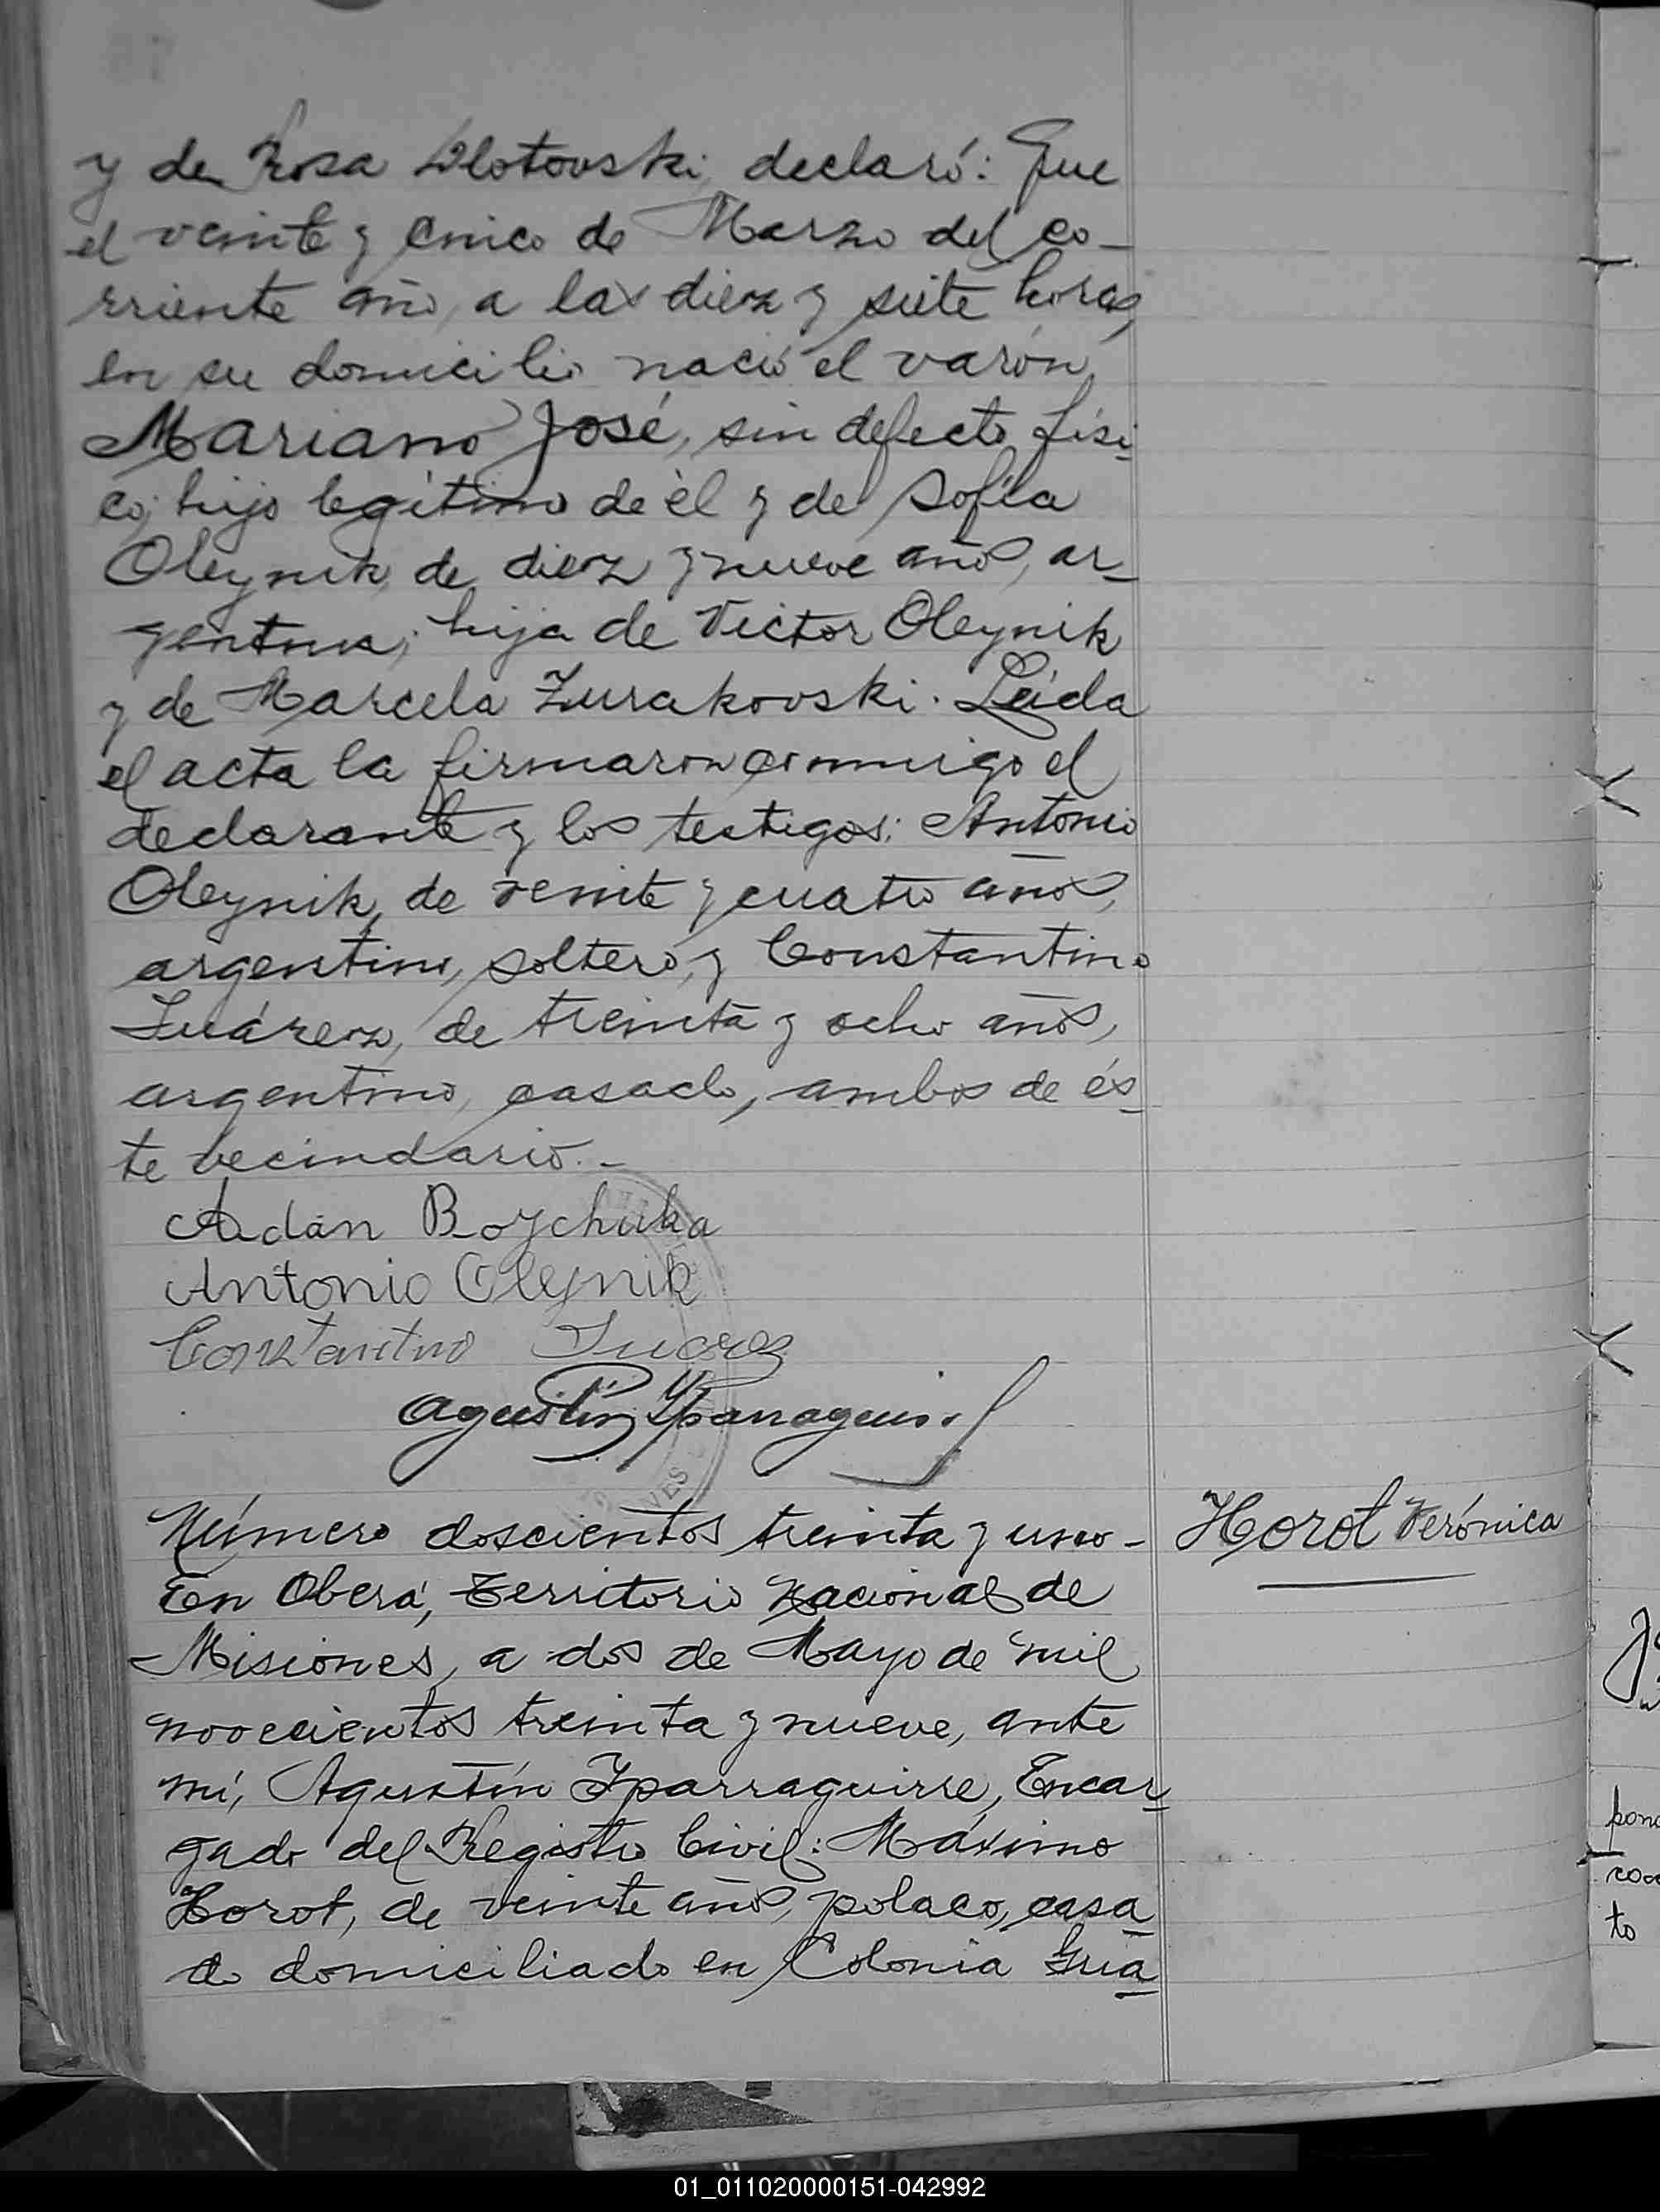 y de Rosa Zlotovski, declaró: Que
el veinte y cinco de Marzo del co-
rriente año, a las diez y siete horas,
en su domicilio nació el varón,
Mariano José, sin defecto físi-
co; hijo legítimo de él y de Sofía
Oleynik, de diez y nueve años, ar-
gentina; hija de Victor Oleynik
y de Marcela Zurakovski. Leída
el acta la firmaron conmigo el
declarante y los testigos: Antonio
Oleynik, de veinte y cuatro años,
argentino, soltero, y Constantino
Suárez, de treinta y ocho años,
argentino, casado, ambos de és-
te vecindario.-
Adán Boychuka
Antonio Oleynik
Constantino Suarez
Agustín Yparraguirre
Número doscientos treinta y uno- Horot Verónica
En Oberá, Territorio Nacional de
Misiones, a dos de Mayo de mil
novecientos treinta y nueve, ante
mí, Agustín Yparraguirre, Encar-
gado del Registro Civil: Máximo
Horot, de veinte años, polaco, casa-
do domiciliado en Colonia Gua-
pon
to
01_011020000151-042992